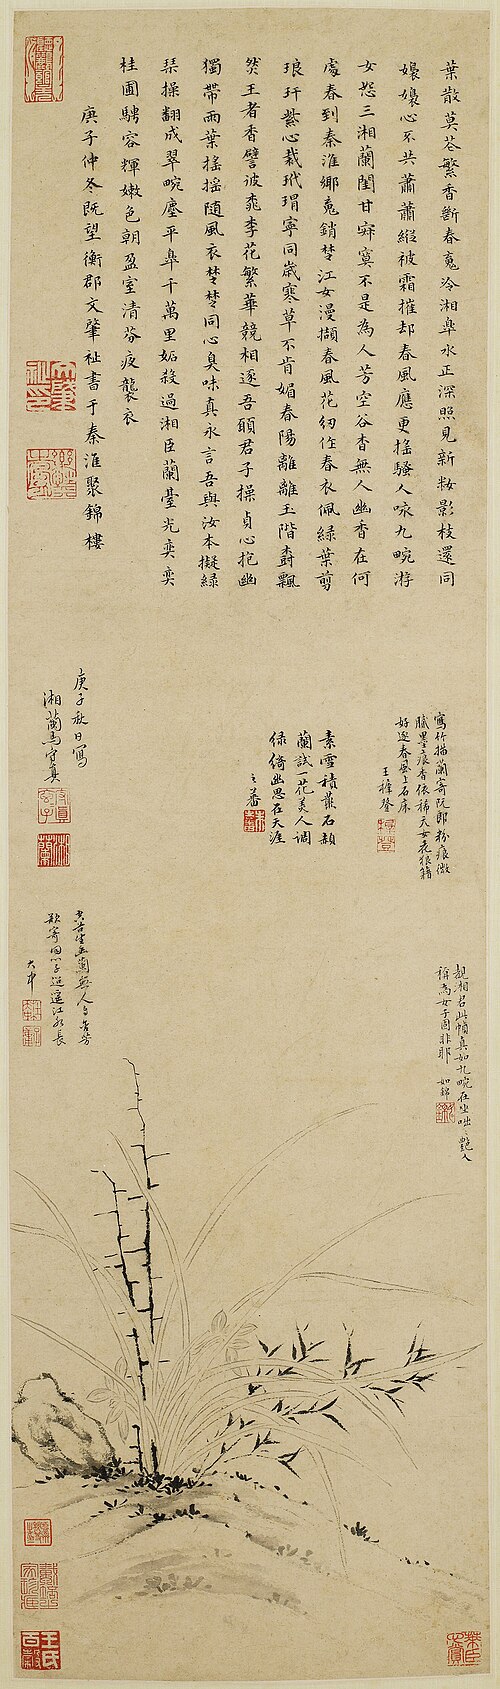 葉散莫茖繁香斷春魂冷湘皐水正深照見新粧影枝還同
嬝嬝心不共蕭蕭緞被霜摧却春風應更搖騷人咏九畹游
女怨三湘蘭閨甘寂寞不是為人芳空谷杳無人幽香在何
處春到秦淮鄉魂銷楚江女漫擷春風花紉作春衣佩綠葉剪
琅玕紫心栽玳瑁寧同歲寒草不肯媚春陽離離玉階樹飄
飄王者香譬彼桃李花繁華競相逐吾願君子操貞心抱幽
獨帶雨葉搖搖隨風衣楚楚同心臭味真永言吾與汝本擬綠
琹操翻成翠畹塵平皐千萬里妬殺過湘臣蘭臺光奕奕
桂圃騁容輝嫩色朝盈室清芬夜襲衣
庚子仲冬既望衡郡文肇祉書于秦淮聚錦樓
寫竹描蘭寄阮郎粉痕微
膩墨痕香依稀天女花狼籍
好逐春風上石床
王穉登
素雪積蒼石頹
蘭試一花美人調
綠綺幽思在天涯
之蕃
庚子秋日寫
湘蘭馬守真
觀湘君此幀真如九畹在坐咄咄艷人
稱為女子固非耶
如錦
空谷生幽蘭無人自含芳
歎寄同心子迢遥江水長
大中